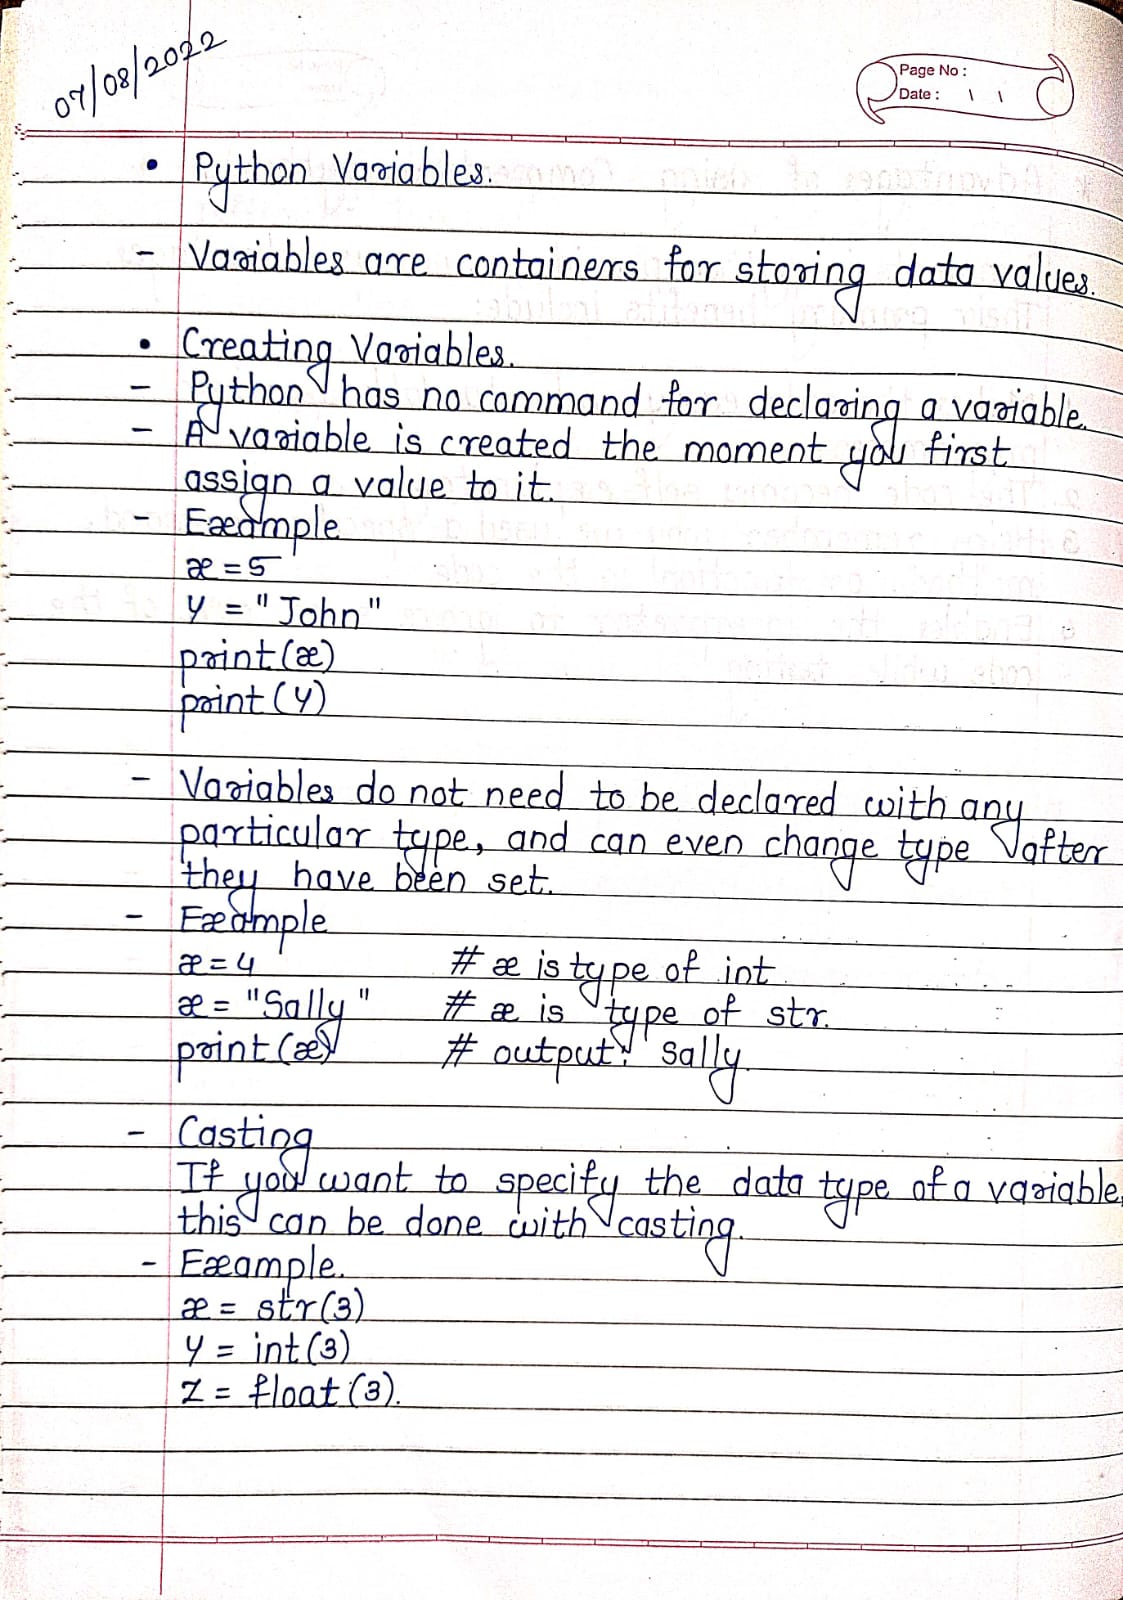 07/08/2022
Page No :
Date :   \   \
• Python Variables.
- Variables are containers for storing data values.
• Creating Variables.
- Python has no command for declaring a variable.
- A variable is created the moment you first
assign a value to it.
- Example
x = 5
y = "John"
print(x)
print(y)
- Variables do not need to be declared with any
particular type, and can even change type after
they have been set.
- Example
x = 4 # x is type of int
x = "Sally" # x is type of str.
print(x) # output: Sally.
- Casting
If you want to specify the data type of a variable,
this can be done with casting.
- Example.
x = str(3)
y = int(3)
z = float(3).